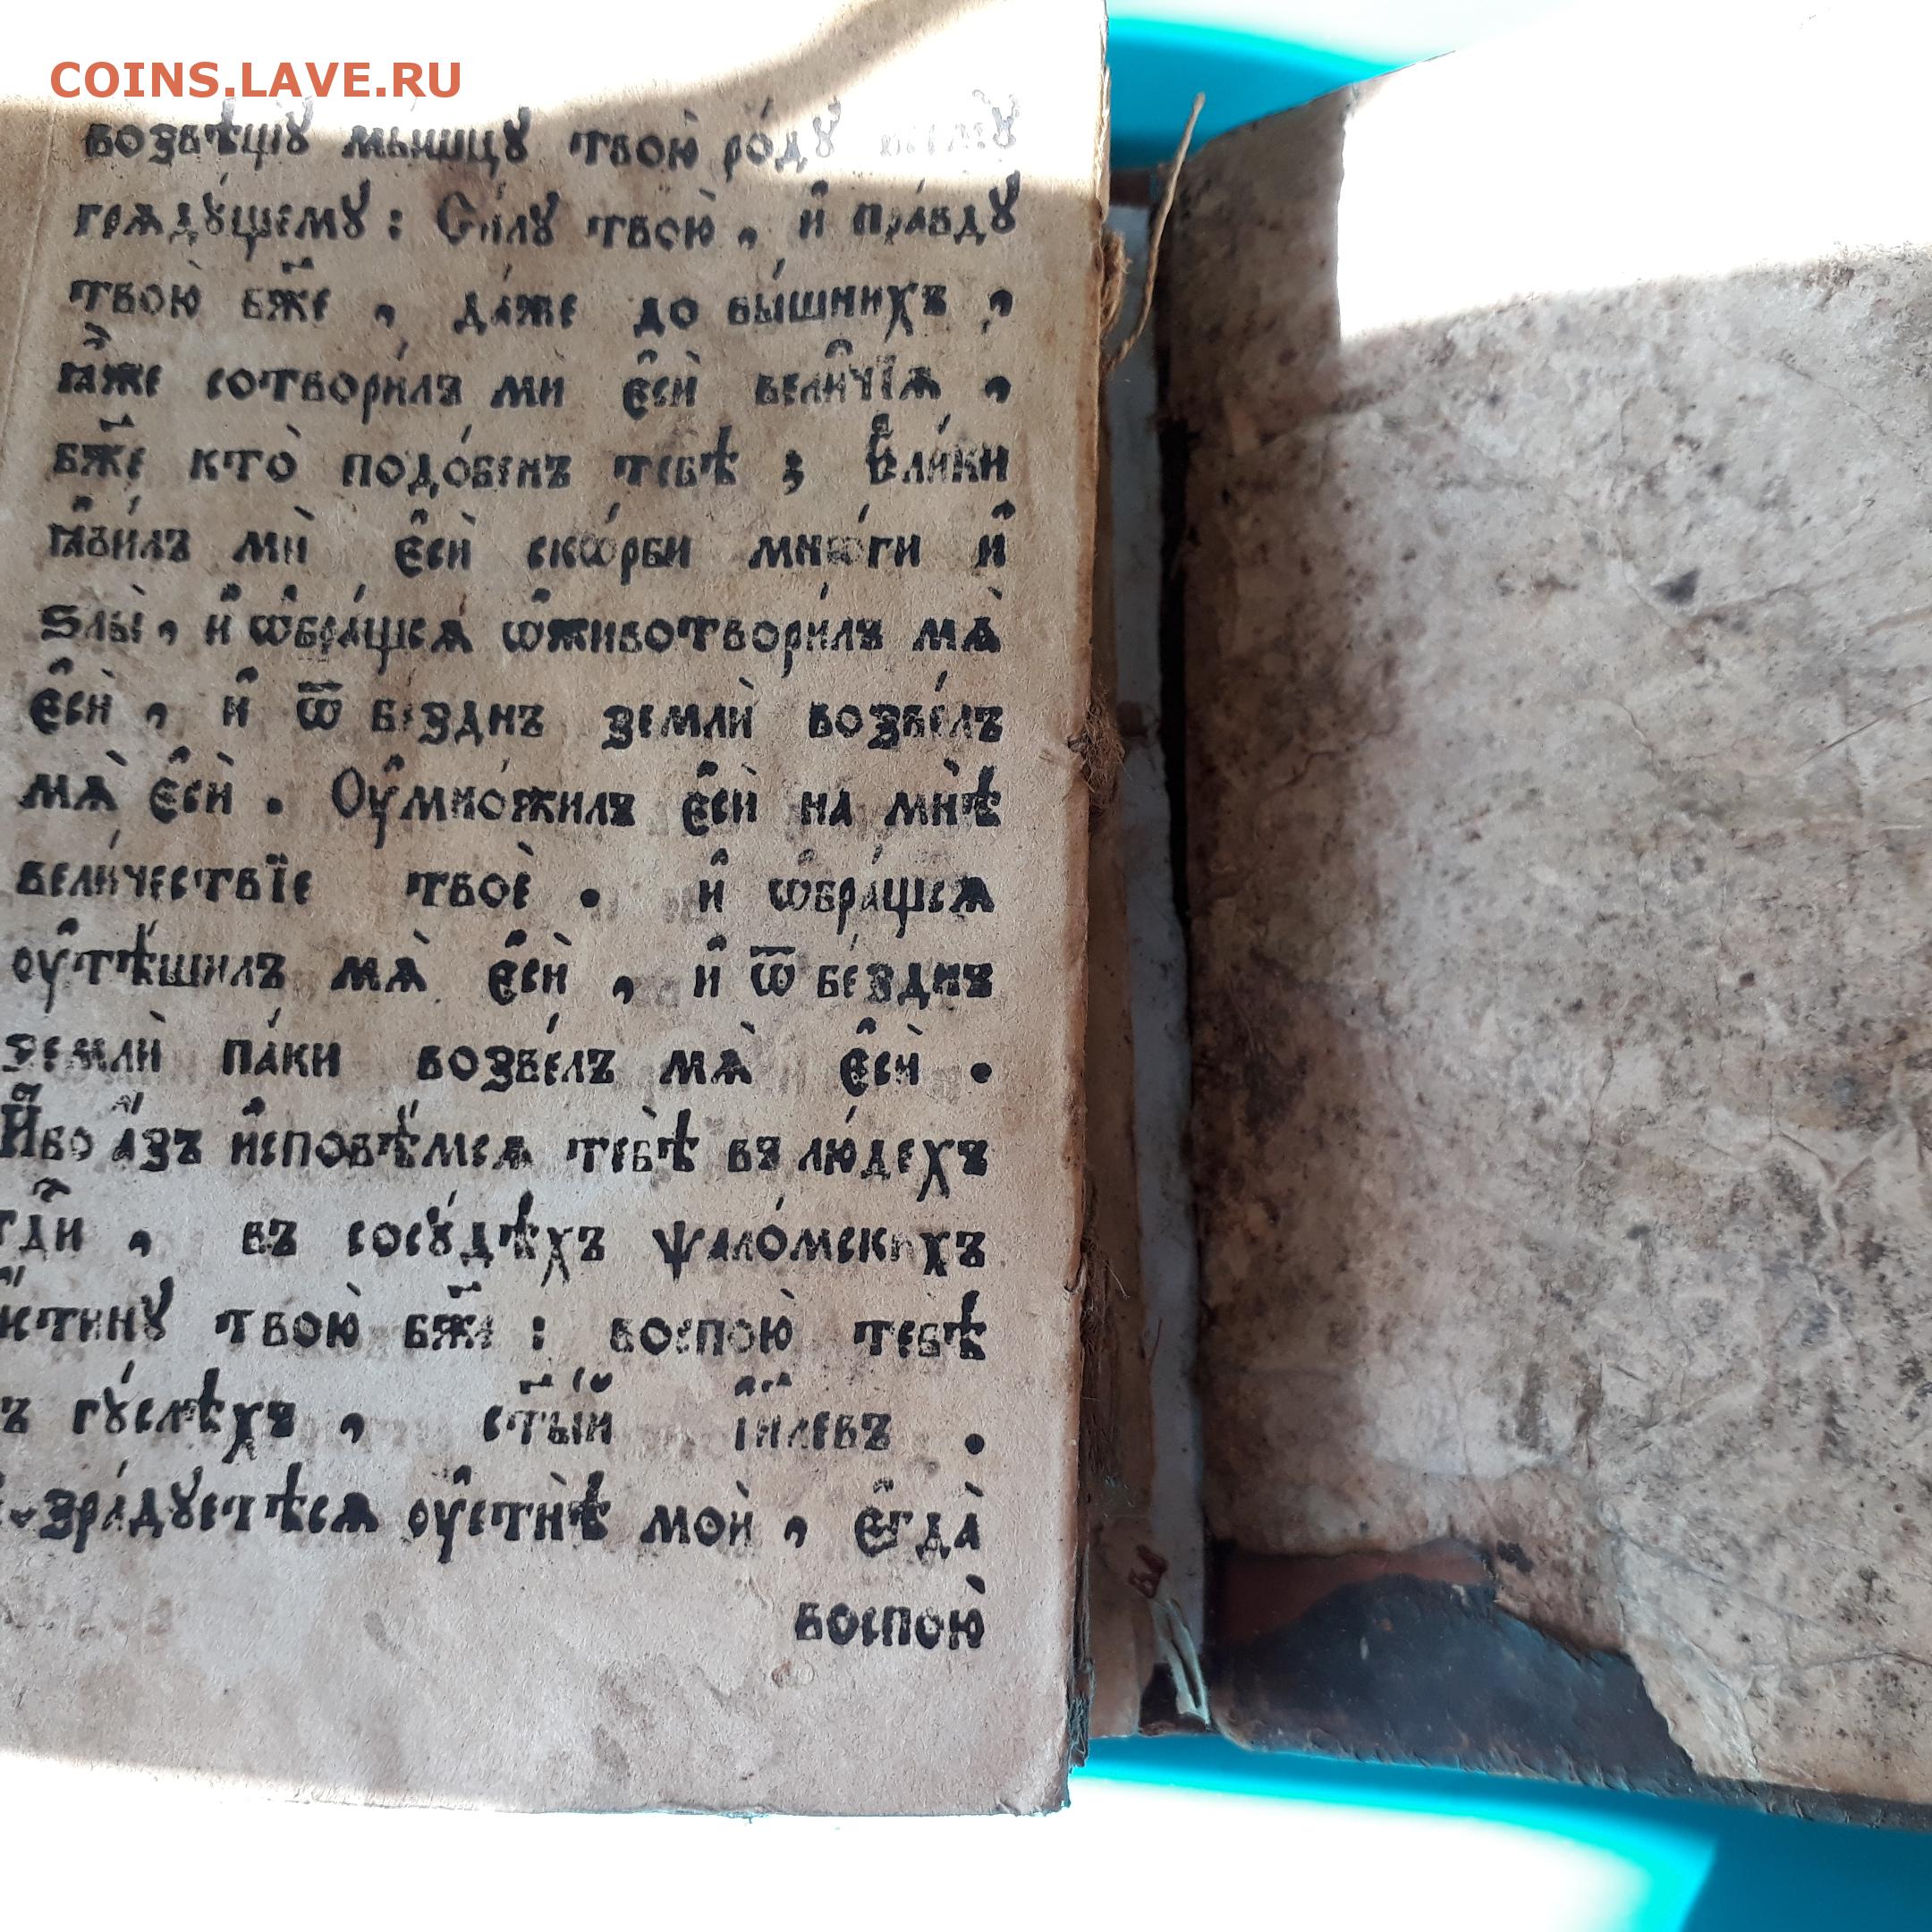 COINS.LAVE.RU
возвѣщꙋ̀ мы́шцꙋ твою̀ ро́дꙋ
грѧдꙋ́щемꙋ : Си́лꙋ твою̀ , и҆ пра́вдꙋ
твою̀ бж҃е , да́же до вы́шнихъ ,
ꙗ҆́же сотвори́лъ ми є҆сѝ вели́чїѧ ,
бж҃е кто̀ подо́бенъ тебѣ̀ ; Е҆ли́ки
ꙗ҆ви́лъ мѝ є҆сѝ скѡ́рби мнѡ́ги и҆
ѕлы̀ , и҆ ѡ҆бра́щсѧ ѡ҆животвори́лъ мѧ̀
є҆сѝ , и҆ ѿ бе́зднъ землѝ возве́лъ
мѧ̀ є҆сѝ . Оу҆мно́жилъ є҆сѝ на мнѣ̀
вели́чествїе твоѐ . и҆ ѡ҆бра́щсѧ
оу҆тѣ́шилъ мѧ̀ є҆сѝ , и҆ ѿ бе́зднъ
землѝ па́ки возве́лъ мѧ̀ є҆сѝ .
И҆́бо а҆́зъ и҆сповѣ́мсѧ тебѣ̀ въ лю́дехъ
гдⷭ҇и , въ сосꙋ́дѣхъ ѱало́мскихъ
и҆́стинꙋ твою̀ бж҃е : воспою̀ тебѣ̀
ъ гꙋ́слѣхъ , ст҃ы́й і҆и҃левъ .
зра́дꙋетѣсѧ оу҆стнѣ̀ моѝ , є҆гда̀
воспою̀